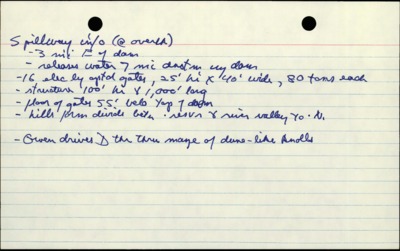 Spillway info (@ overlk)
- 3 mi E of dam
- releases water 7 mi dnstrm dam
- 16 elec opt'd gates, 25' hi x 40' wide, 80 tons each
- structure 100' hi & 1,000' long
- floor of gates 55' belo top of dam
- hills form divide betw. resvr & river valley to N.
- Owen drives thru maze of dune-like knolls